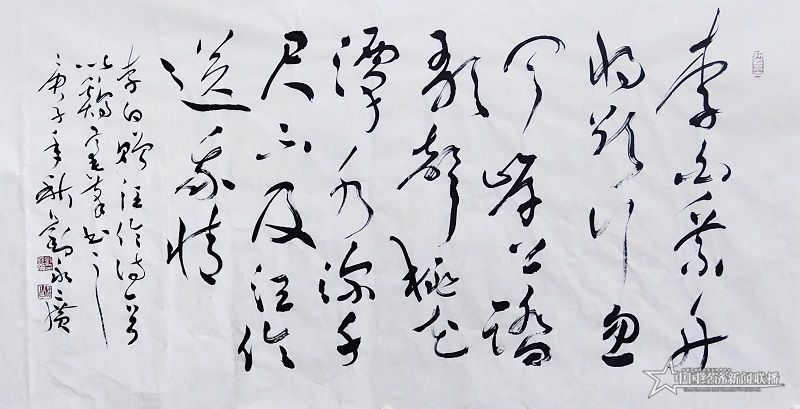 李白乘舟
将欲行忽
闻岸上踏
歌聲桃花
潭水深千
尺不及汪伦
送我情
李白赠汪伦诗一首
以鷄毫笔书之
庚子年新 劉永廣
中国经济新闻联播